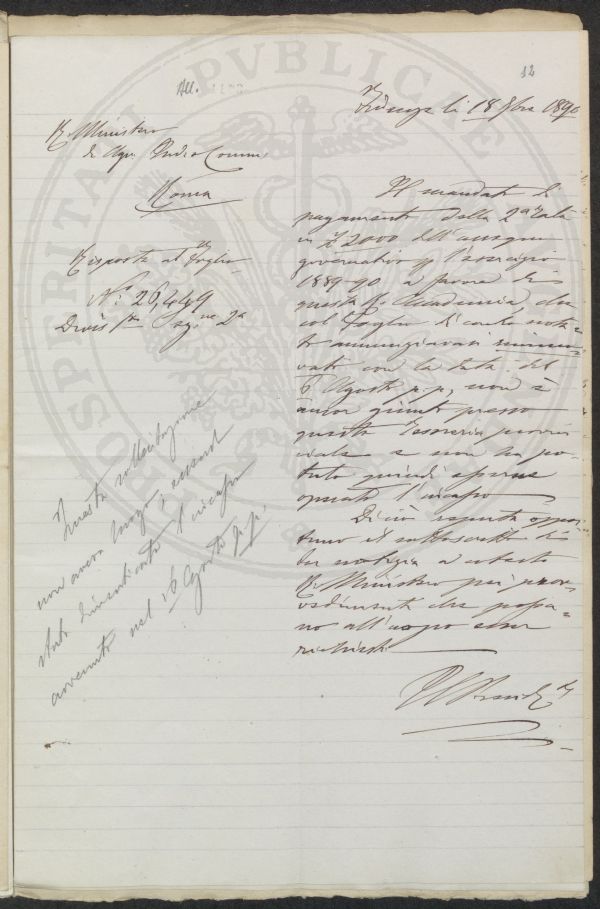 12
All.
Firenze li 18 8bre 1890
R. Ministero
di Agr. Ind. e Comm
Roma
Risposta al foglio
N.° 26,449
Divis 1a Sez.ne 2a
Il mandato di
pagamento della 2a rata
in £ 2000 dell'assegno
governativo p l'esercizio
1889-90 a favore di
questa R. Accademia che
col foglio di contro nota-
to annunziavasi
vato con la data del
6 Agosto p.p., non è
ancor giunto presso
questa Tesoreria provin
ciale e non ha po-
tuto quindi essere
operato l'incasso
Di ciò reputa oppor
tuno il sottoscritto
dar notizia a codesto
R. Ministero pei prov-
vedimenti che possa-
no all'uopo esser
richiesti
Il Presid.e
Questa sollecitazione
non aveva luogo, essend
stato dimenticato l'incasso
avvenuto nel 16 Agosto p.p.
PVBLICAE
PROSPERITATI